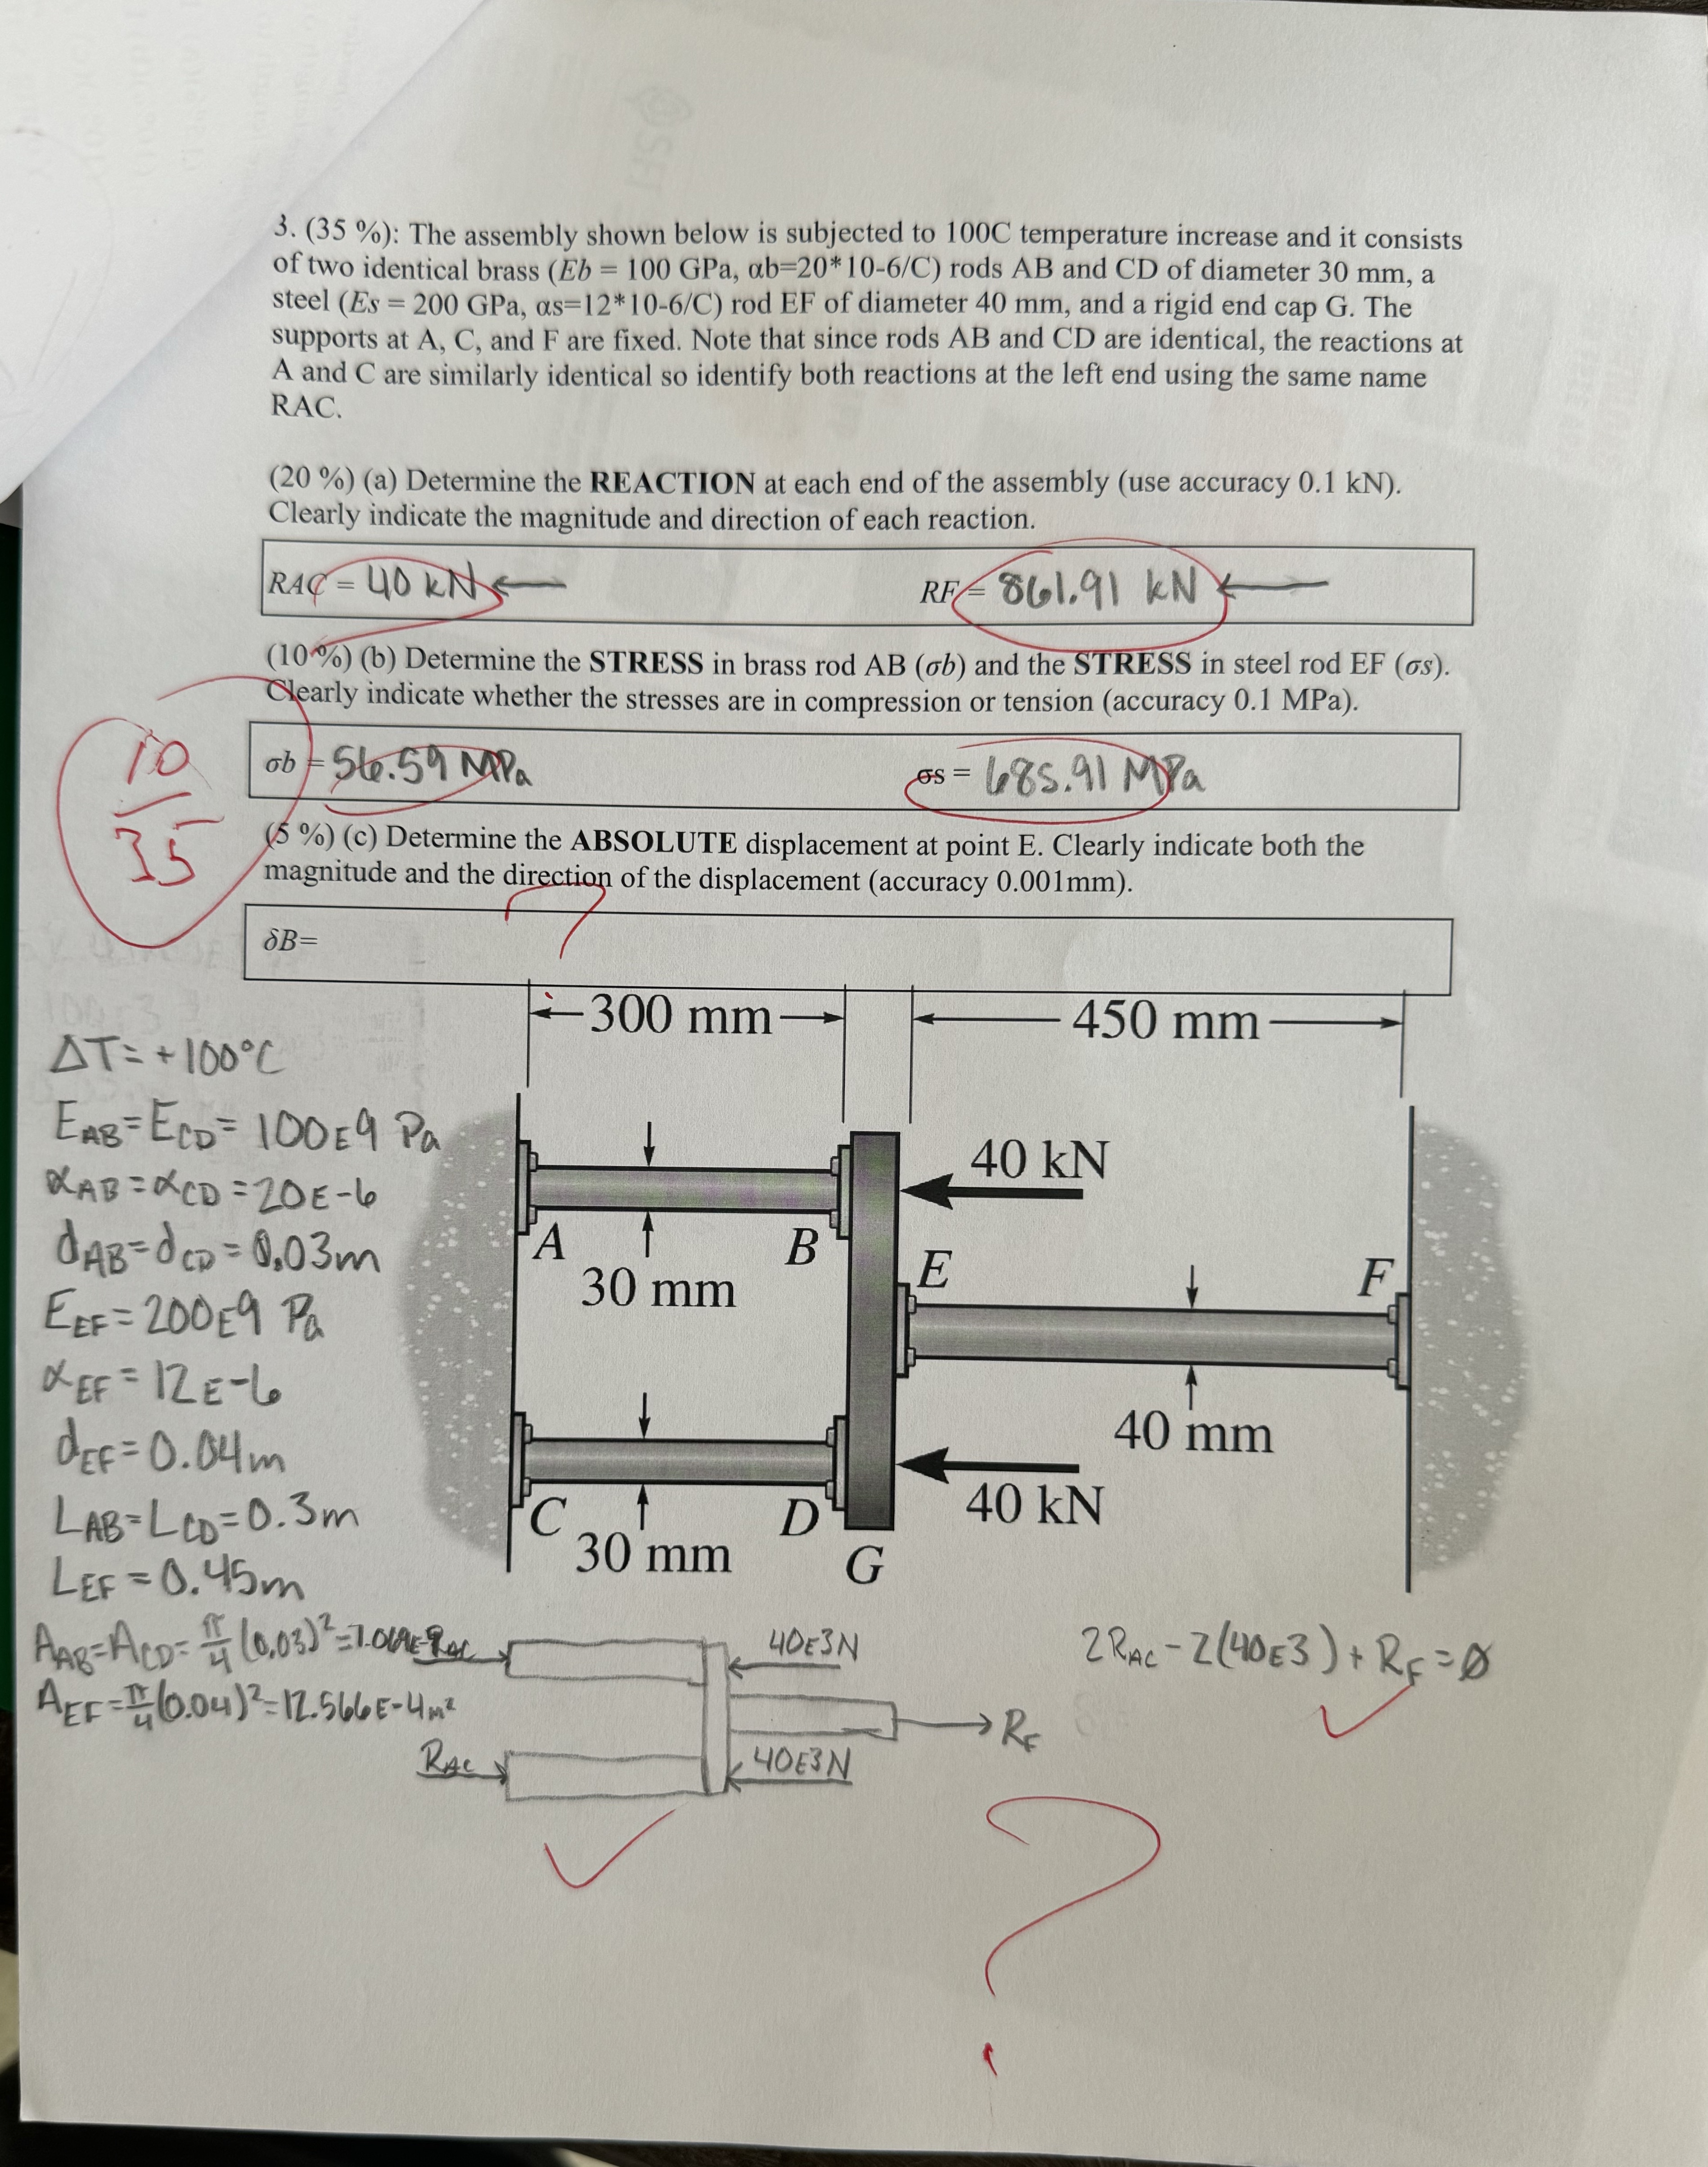 3. (35 %): The assembly shown below is subjected to 100C temperature increase and it consists
of two identical brass (Eb = 100 GPa, αb=20*10-6/C) rods AB and CD of diameter 30 mm, a
steel (Es = 200 GPa, αs=12*10-6/C) rod EF of diameter 40 mm, and a rigid end cap G. The
supports at A, C, and F are fixed. Note that since rods AB and CD are identical, the reactions at
A and C are similarly identical so identify both reactions at the left end using the same name
RAC.
(20 %) (a) Determine the REACTION at each end of the assembly (use accuracy 0.1 kN).
Clearly indicate the magnitude and direction of each reaction.
RAC = 40 kN ← RF = 861.91 kN ←
(10 %) (b) Determine the STRESS in brass rod AB (σb) and the STRESS in steel rod EF (σs).
Clearly indicate whether the stresses are in compression or tension (accuracy 0.1 MPa).
σb = 56.59 MPa σs = 685.91 MPa
10
35
(5 %) (c) Determine the ABSOLUTE displacement at point E. Clearly indicate both the
magnitude and the direction of the displacement (accuracy 0.001mm).
?
δB=
300 mm 450 mm
ΔT= +100°C
E_AB=E_CD= 100E9 Pa
α_AB=α_CD=20E-6
d_AB=d_CD=0.03m
E_EF=200E9 Pa
α_EF=12E-6
d_EF=0.04m
L_AB=L_CD=0.3m
L_EF=0.45m
40 kN
A B
30 mm
E F
40 mm
40 kN
C D
30 mm
G
A_AB=A_CD= π/4 (0.03)²=7.069E-
R_AC 40E3N
2R_AC - 2(40E3) + R_F = Ø
A_EF=π/4(0.04)²=12.566E-4 m²
R_F
R_AC 40E3N
?